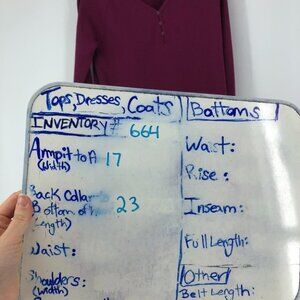 Tops, Dresses, Coats
INVENTORY # 664
Armpit to A 17
(width)
Back Collar
Bottom of 23
(Length)
Waist:
Shoulders:
(width)
Bottoms
Waist:
Rise:
Inseam:
Full Length:
Other
Belt Length: